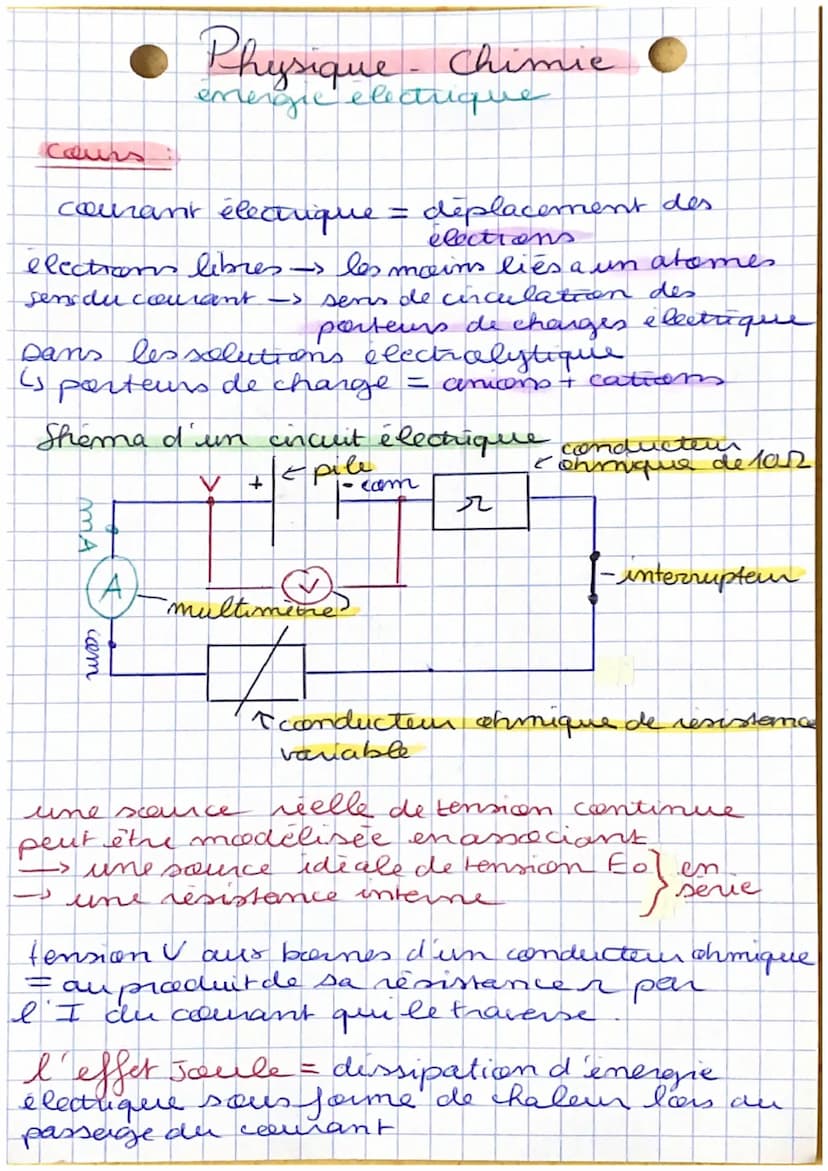 Physique - Chimie
énergie électrique
Cours :
courant électrique = déplacement des
électrons
électrons libres → les moins liés a un atomes
sens du courant → sens de circulation des
porteurs de charges électrique
Dans les solutions électrolytique
↳ porteurs de charge = anions + cations
Shéma d'un circuit électrique
conducteur
ohmique de 10Ω
V + ← pile
- com
r
mA
A
V
- interrupteur
multimètre
com
↑ conducteur ohmique de résistance
variable
une source réelle de tension continue
peut être modélisée en associant
→ une source idéale de tension E0 } en
→ une résistance interne } série
tension U aux bornes d'un conducteur ohmique
= au produit de sa résistance r par
l'I du courant qui le traverse.
l'effet Joule = dissipation d'énergie
électrique sous forme de chaleur lors au
passage du courant